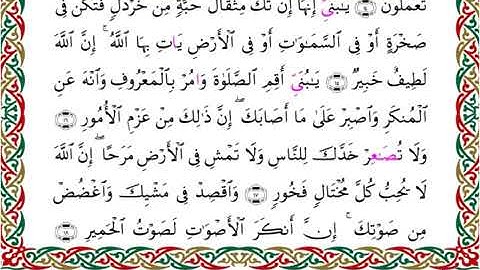 تَعْمَلُونَ يَـٰبُنَيِّ إِنَّهَا إِن تَكُ مِثْقَالَ حَبَّةٍ مِّنْ خَرْدَلٍ فَتَكُن فِي
صَخْرَةٍ أَوْ فِي السَّمَـٰوَاتِ أَوْ فِي الْأَرْضِ يَاتِ بِهَا اللَّهُ ۚ إِنَّ اللَّهَ
لَطِيفٌ خَبِيرٌ يَـٰبُنَيِّ أَقِمِ الصَّلَوٰةَ وَامُرْ بِالْمَعْرُوفِ وَانْهَ عَنِ
الْمُنكَرِ وَاصْبِرْ عَلَىٰ مَا أَصَابَكَ ۖ إِنَّ ذَٰلِكَ مِنْ عَزْمِ الْأُمُورِ
وَلَا تُصَـٰعِرْ خَدَّكَ لِلنَّاسِ وَلَا تَمْشِ فِي الْأَرْضِ مَرَحًا ۖ إِنَّ اللَّهَ
لَا يُحِبُّ كُلَّ مُخْتَالٍ فَخُورٍ وَاقْصِدْ فِي مَشْيِكَ وَاغْضُضْ
مِن صَوْتِكَ ۚ إِنَّ أَنكَرَ الْأَصْوَاتِ لَصَوْتُ الْحَمِيرِ